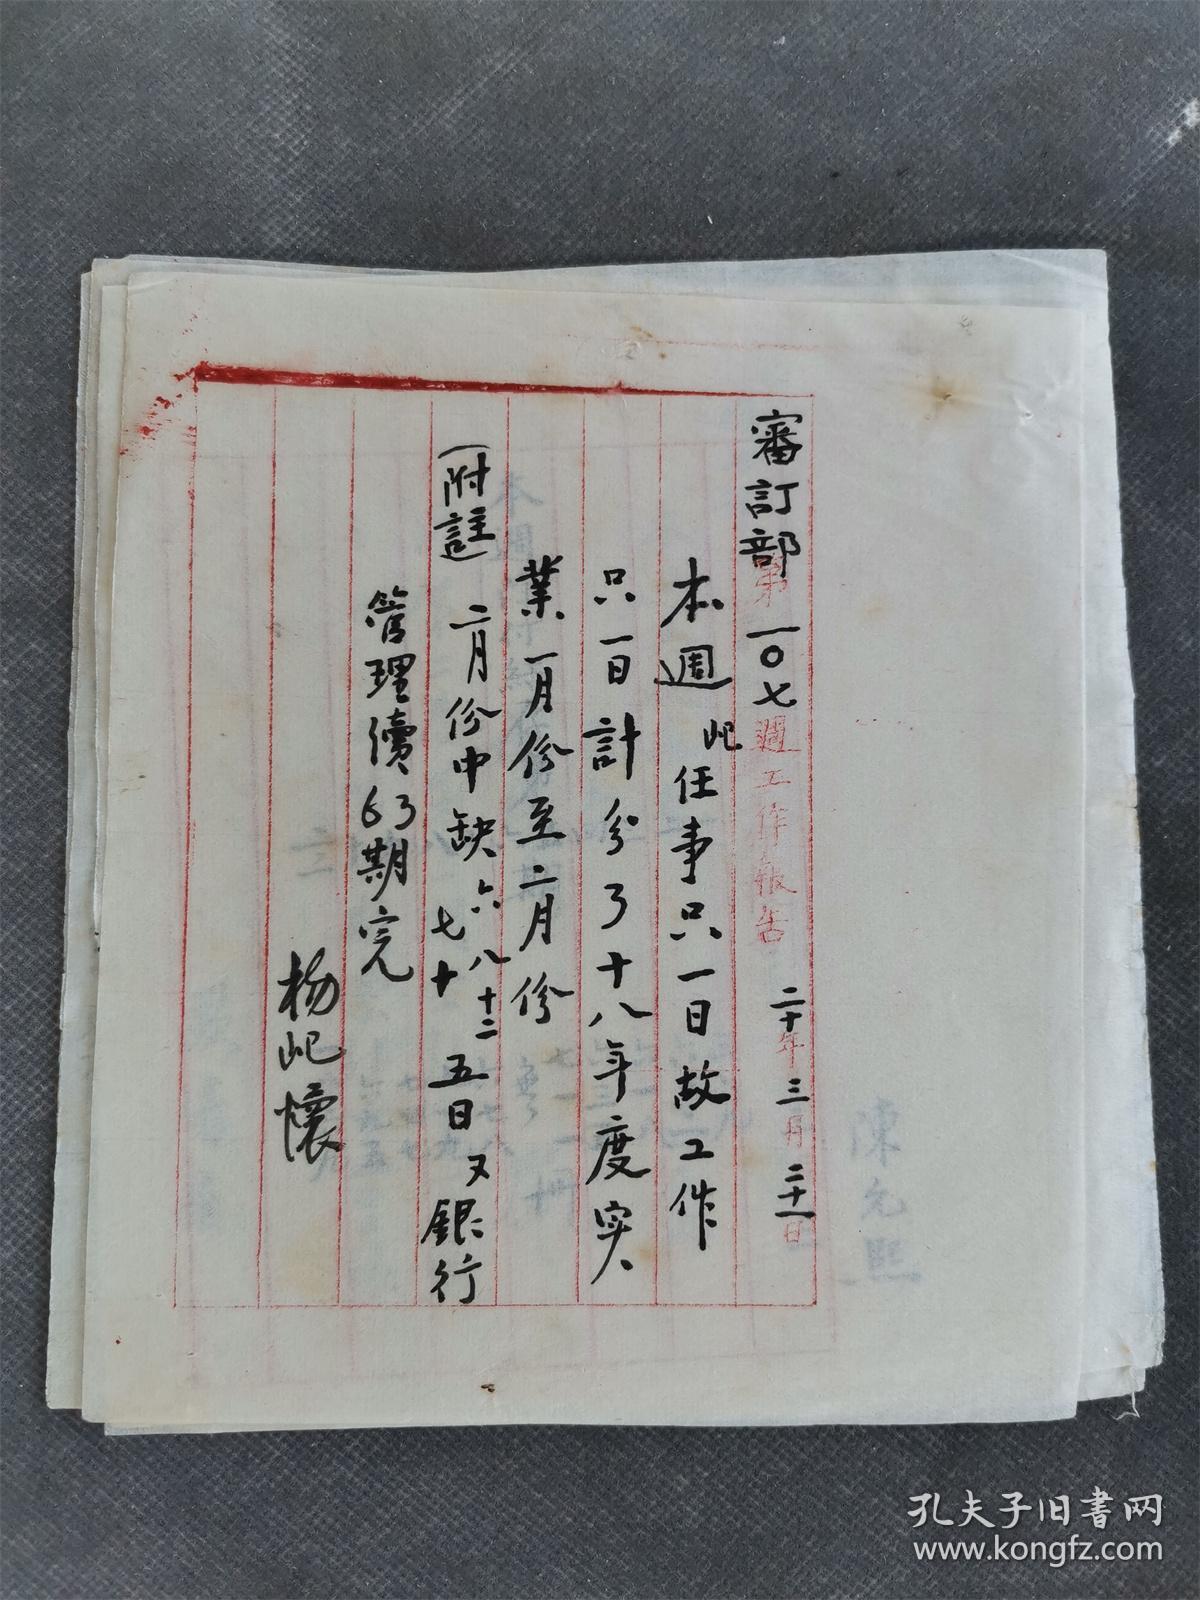 審訂部第一〇七週工作報告 二十年三月二十一日
本週屺任事只一日故工作
只一日計分了十八年度实
業一月份至二月份
(附註 二月份中缺六八十二
七十五日又銀行
管理續63期完
楊屺懷
陳允熙
孔夫子旧书网
www.kongfz.com